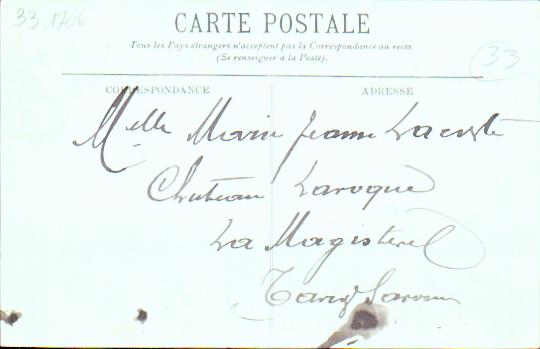 33 1706
CARTE POSTALE
Tous les Pays étrangers n'acceptent pas la Correspondance au recto
(Se renseigner à la Poste).
33
CORRESPONDANCE
ADRESSE
Melle Marie Jeanne Lacoste
Chateau Laroque
La Magistère
Tarn